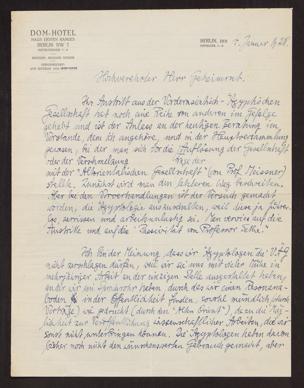 DOM-HOTEL
HAUS ERSTEN RANGES
BERLIN NW 7
BERLIN, DEN 7. Januar 1928.
Hochverehrter Herr Geheimrat.
Ihr Austritt aus der Vorderasiatisch-Ägyptischen
Gesellschaft hat noch eine Reihe von anderen im Gefolge
gehabt und ist der Anlass zu der heutigen Beratung im
Vorstande, dem ich angehöre, und in der Hauptversammlung
gewesen, in der man sich vor die Auflösung der Gesellschaft
oder der Verschmelzung
mit der "Altorientalischen Gesellschaft" (von Prof. Meissner)
stellte. Zunächst wird man den letzteren Weg beschreiten.
Aber bei den Vorverhandlungen ist der Versuch gemacht
worden, die Ägyptologie auszuschalten, weil diese in sich
zerrissen und arbeitsunlustig sei. Man verwies auf die
Austritte und auf die "Passivität von Professor Sethe."
Ich bin der Meinung, dass wir Ägyptologen die VAG
nicht zerschlagen dürfen, weil wir sie uns mit vieler Mühe in
mehrjähriger Arbeit an der richtigen Stelle ausgestaltet haben,
und wir im Jahre haben durch das wir einen Resonanz-
boden in der Öffentlichkeit finden, sowohl mündlich (durch
Vorträge) wie gedruckt (durch den "Alten Orient"), und die Mög-
lichkeit zur Veröffentlichung wissenschaftlicher Arbeiten, die wir
sonst nicht unterbringen können. Die Ägyptologen haben davon
bisher noch nicht den wünschenswerten Gebrauch gemacht, aber